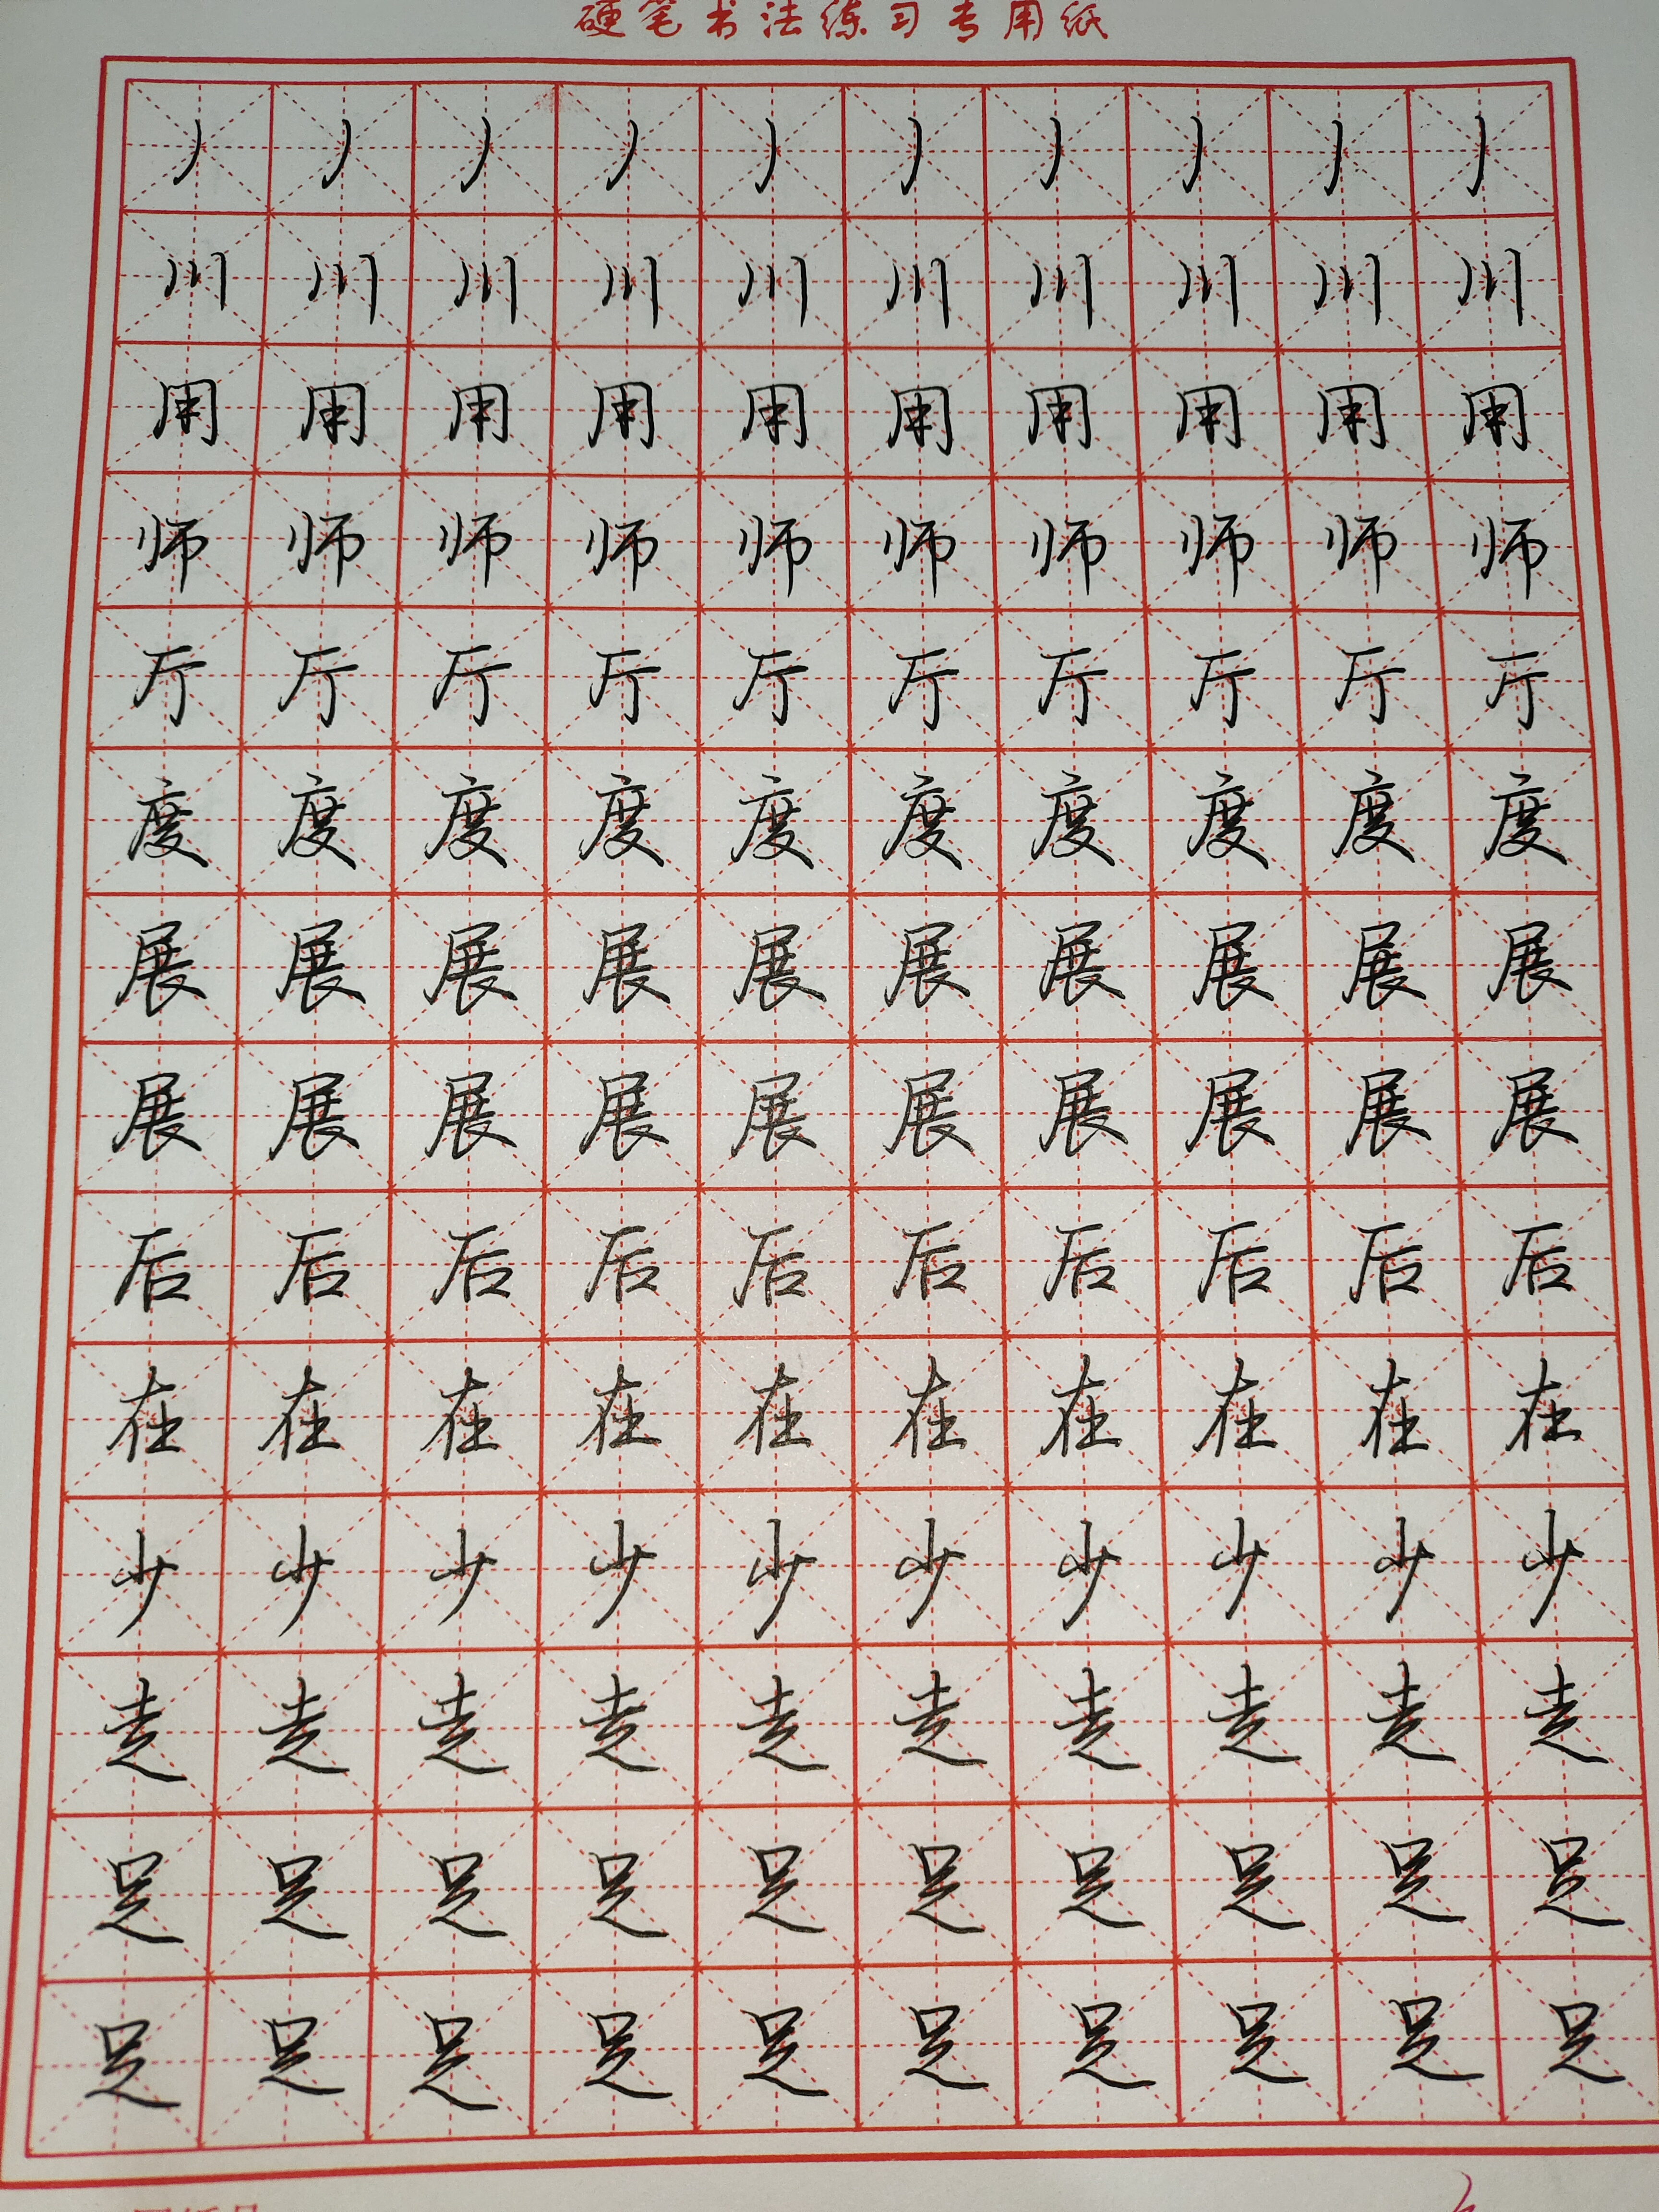 硬笔书法练习专用纸
丿丿丿丿丿丿丿丿丿丿
川川川川川川川川川川
用用用用用用用用用用
师师师师师师师师师师
厅厅厅厅厅厅厅厅厅厅
度度度度度度度度度度
展展展展展展展展展展
展展展展展展展展展展
后后后后后后后后后后
在在在在在在在在在在
少少少少少少少少少少
走走走走走走走走走走
足足足足足足足足足足
足足足足足足足足足足